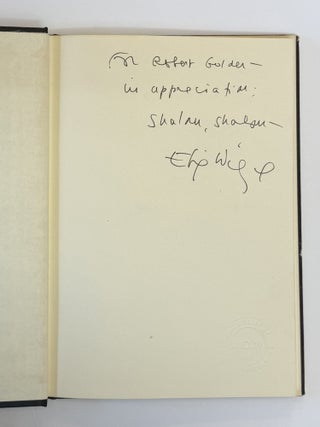 For Robert Golden —
in appreciation:
Shalom, Shalom —
Elie Wiesel